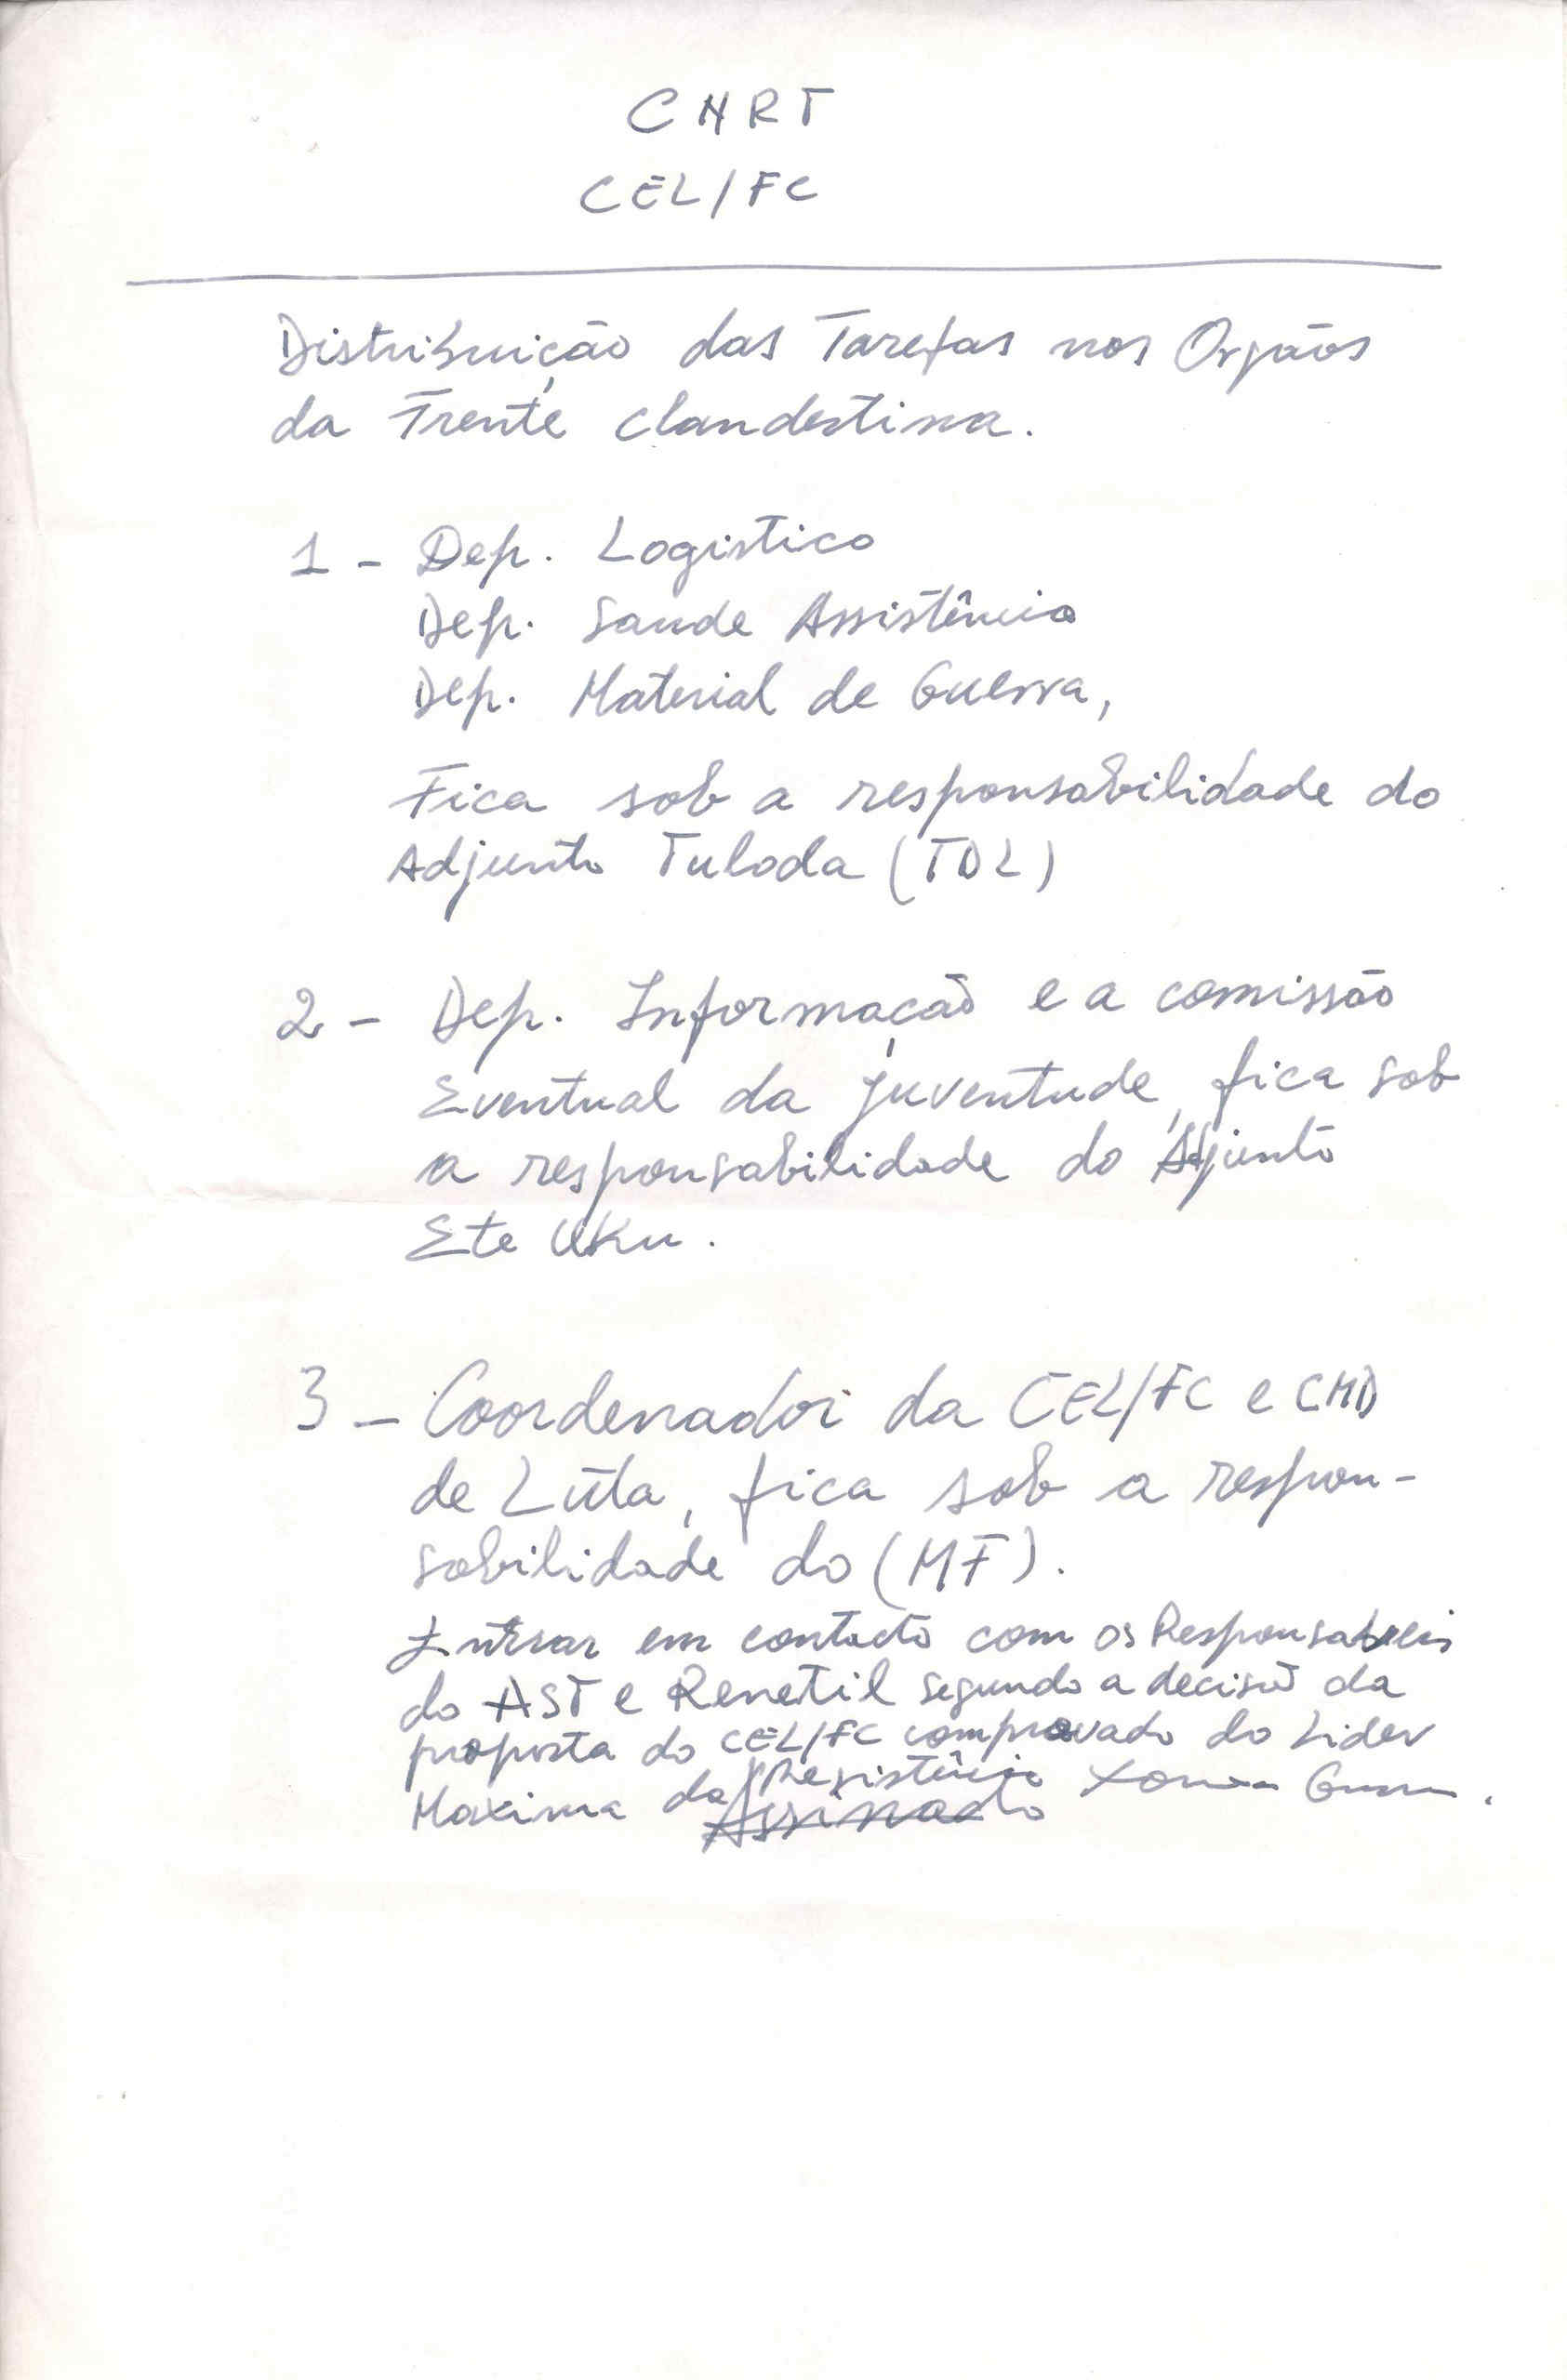 CNRT
CEL/FC
Distribuição das Tarefas nos Orgãos
da Frente clandestina.
1 - Dep. Logistico
Dep. Saude Assistência
Dep. Material de Guerra,
Fica sob a responsabilidade do
Adjunto Tuloda (TDL)
2 - Dep. Informação e a comissão
Eventual da juventude, fica sob
a responsabilidade do Adjunto
Ete Uku.
3 - Coordenador da CEL/FC e CMD
de Luta, fica sob a respon-
sabilidade do (MF).
Entrar em contacto com os Responsabeis
do AST e Renetil segundo a decisão da
proposta do CEL/FC comprovado do Lider
Maxima da Resistência Xanana Gusm.
Assinado